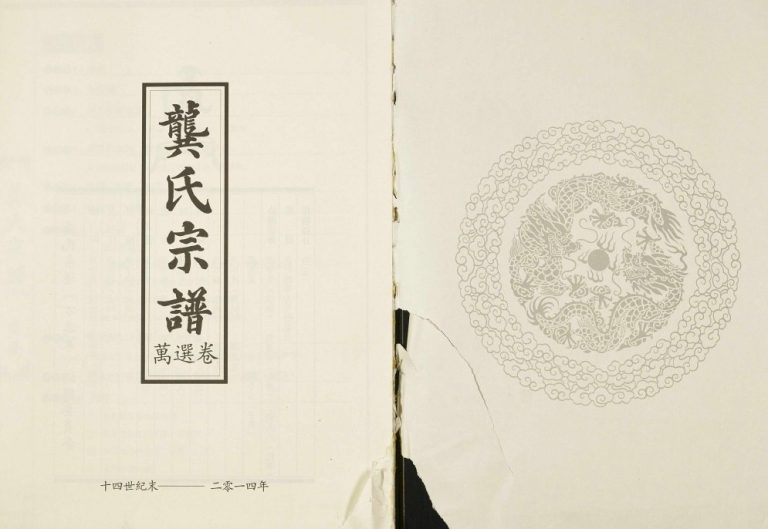 龔氏宗譜
萬選卷
十四世紀末———二零一四年